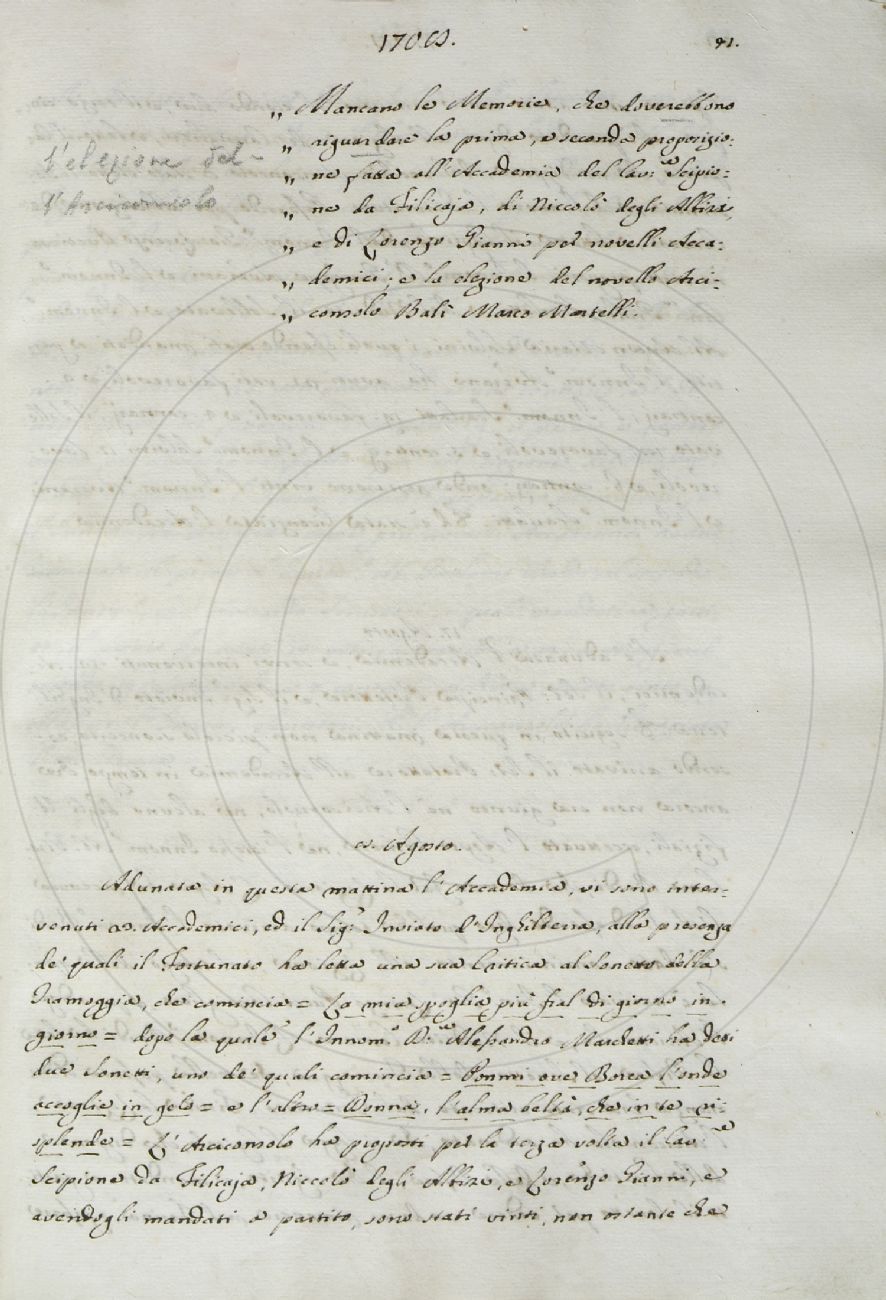 1708.
91.
„ Mancano le Memorie, che doverebbono
„ riguardare la prima, e seconda proposizio=
„ ne fatta all'Accademia del Cav:re Scipio=
„ ne da Filicaja, di Niccolò degli Albizi,
„ e di Lorenzo Gianni per novelli Acca=
„ demici; e la elezione del novello Arci=
„ consolo Balì Marco Martelli.
l'elezione del=
l'Arciconsolo
8. Agosto.
Adunata in questa mattina l'Accademia, vi sono inter=
venuti Accademici, ed il Sig.r Inviato d'Inghilterra, alla presenza
de' quali il Fortunato ha letta una sua Critica al Sonetto della
Tramoggia, che comincia = La mia spoglia più fral di giorno in
giorno = dopo la quale l'Innom.o D.re Alessandro Marchetti ha detti
due Sonetti, uno de' quali comincia = Ponmi ove Borea l'onde
accoglie in gelo = e l'altro = Donna, l'alma beltà, che in te ri=
splende = L'Arciconsolo ha proposti per la terza volta il Cav:re
Scipione da Filicaja, Niccolò degli Albizi, e Lorenzo Gianni, e
avendogli mandati a partito, sono stati vinti, non ostante che